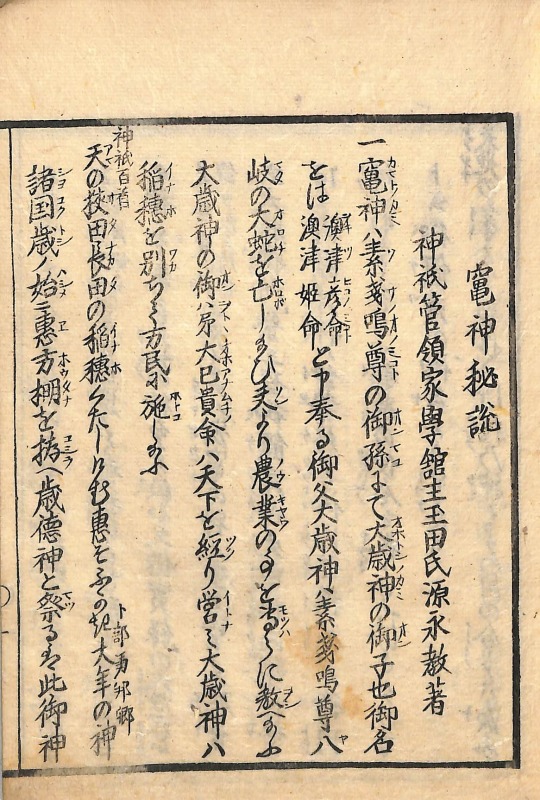 竈神秘説
神祇管領家學舘主玉田氏源永教著
一竈神ハ素戔嗚尊の御孫にて大歳神の御子也御名
をは澳津彦命澳津姫命と申奉る御父大歳神ハ素戔嗚尊八
岐の大蛇を亡し給ひ夫より農業の事を専らに教へ給ふ
大歳神の御ハ弟大己貴命ハ天下を経り営ミ大歳神ハ
稲穂を別ちて方民に施し給ふ
神祇百首
天の狡田長田の稲穂 む恵そふかき大年の神
卜部 邦郷
諸国歳ノ始ニ恵方棚を拵へ歳徳神と祭るハ此御神